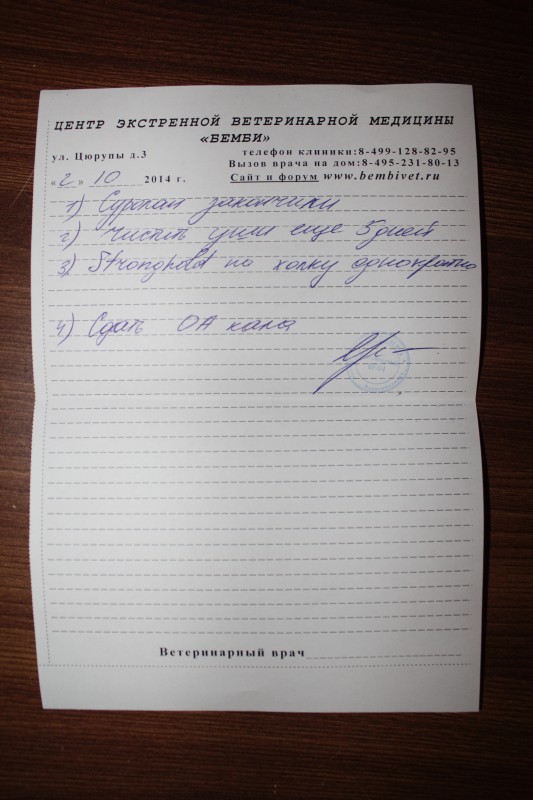 ЦЕНТР ЭКСТРЕННОЙ ВЕТЕРИНАРНОЙ МЕДИЦИНЫ
«БЕМБИ»
ул. Цюрупы д.3
телефон клиники:8-499-128-82-95
Вызов врача на дом:8-495-231-80-13
«2» 10 2014 г. Сайт и форум www.bembivet.ru
1) Суролан закончили
2) Чистить уши еще 5 дней
3) Stronghold на холку однократно
4) Сдать ОА кала
Ветеринарный врач